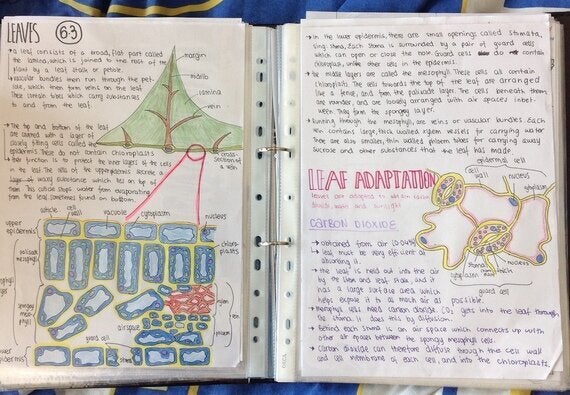 LEAVES 6.3
→ a leaf consists of a broad, flat part called
the lamina, which is joined to the rest of the
plant by a leaf stalk or petiole.
→ vascular bundles then run through the pet-
iole, which then form veins on the leaf.
These contain tubes which carry substances
to and from the leaf.
margin
midrib
lamina
vein
cross-
section of
a vein
→ The top and bottom of the leaf
are covered with a layer of
closely fitting cells called the
epidermis. These do not contain chloroplasts
→ their function is to protect the inner layers of the cells
in the leaf. The cells of the upper epidermis secrete a
layer of waxy substance, which lies on top of
them. This cuticle stops water from evaporating
from the leaf, sometimes found on bottom.
cuticle
cell
wall
vacuole
cytoplasm
nucleus
upper
epidermis
palisade
mesophyll
chloro-
plasts
spongey
meso-
phyll
xylem
vein
phloem
air space
guard cell
lower
epidermis
stoma
→ In the lower epidermis, there are small openings called stomata,
sing. stoma. Each stoma is surrounded by a pair of guard cells
which can open or close the hole. Guard cells do contain
chloroplast, unlike other cells in the epidermis.
→ the middle layers are called the mesophyll. These cells all contain
chloroplasts. The cells towards the top of the leaf are arranged
like a fence, and form the palisade layer. The cells beneath them
are rounder, and are loosely arranged with air spaces inbet-
ween. They form the spongey layer.
→ Running through the mesophyll, are veins or vascular bundles. Each
vein contains large, thick walled xylem vessels for carrying water.
There are also smaller, thin walled phloem tubes for carrying away
sucrose and other substances that the leaf has made.
epidermal cell
cell
wall
nucleus
cytoplasm
LEAF ADAPTATION
leaves are adapted to obtain carbon
dioxide, water and sunlight
CARBON DIOXIDE
stoma
cytoplasm
guard cell
→ obtained from air (0.04%)
→ leaf must be very efficient at
absorbing it.
→ the leaf is held out into the air
by the stem and leaf stalk, and it
has a large surface area which
helps expose it to as much air as possible.
→ Mesophyll cells need carbon dioxide. CO₂ gets into the leaf through
the stomata. It does this by diffusion.
→ Behind each stoma is an air space which connects up with
other air spaces between the spongy mesophyll cells.
→ Carbon dioxide can therefore diffuse through the cell wall
and cell membrane of each cell, and into the chloroplasts.